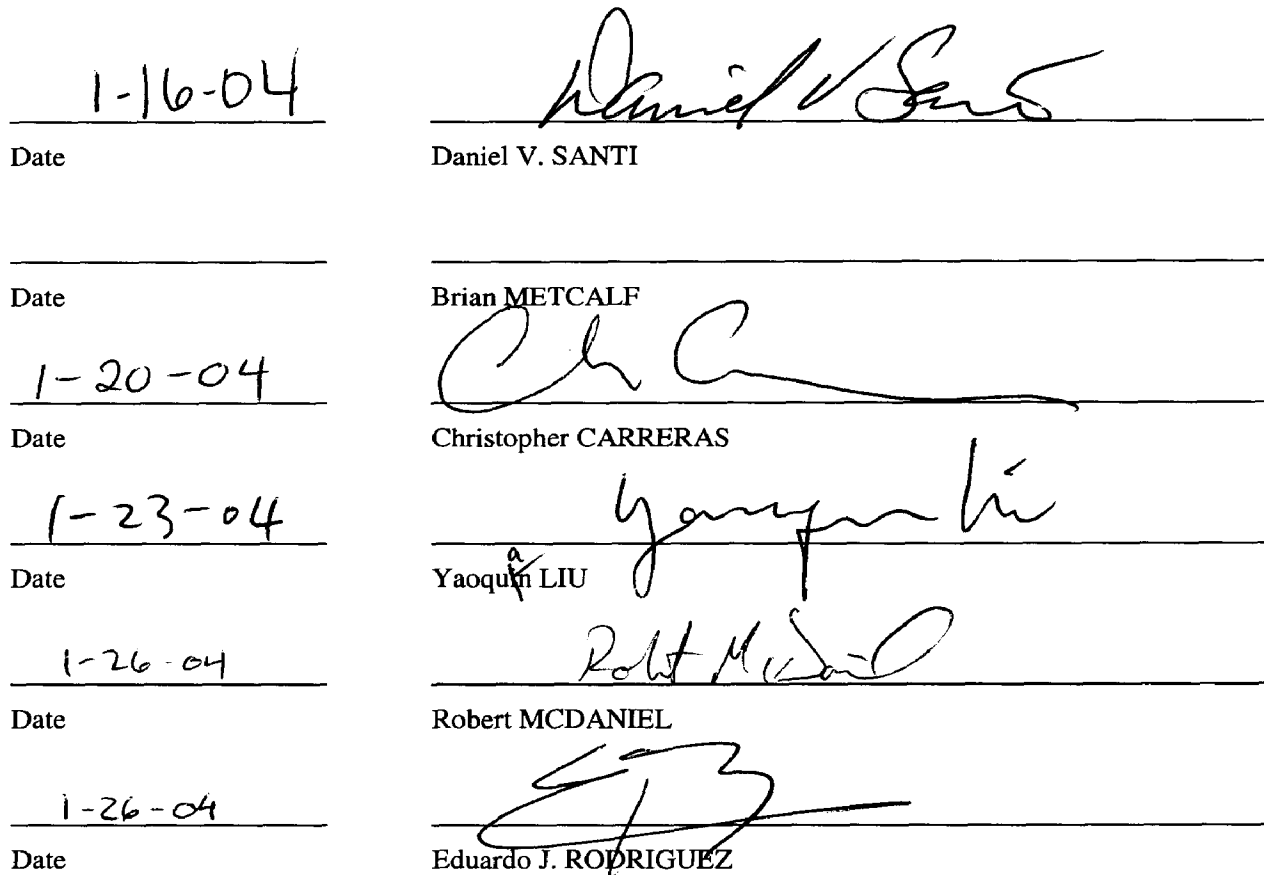 1-16-04 Daniel V Santi
Date Daniel V. SANTI
Date Brian METCALF
1-20-04
Date Christopher CARRERAS
1-23-04 Yaoquan Liu
Date Yaoquin LIU
a
1-26-04 Robert McDaniel
Date Robert MCDANIEL
1-26-04
Date Eduardo J. RODRIGUEZ